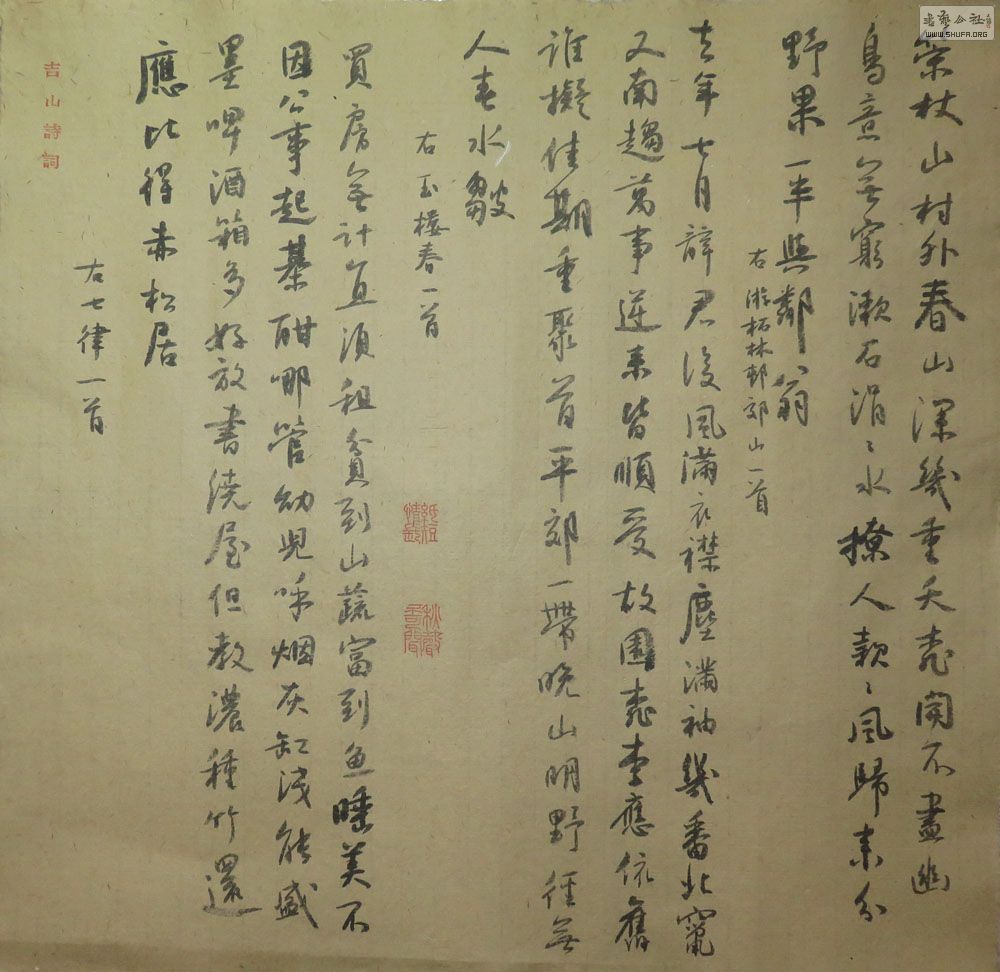 策杖山村外春山深幾重夭桃開不盡幽
鳥意無窮漱石涓〻水撩人款〻風歸來分
野果一半與鄰翁
右游柘林邨郊山一首
去年七月辭君後風滿衣襟塵滿袖幾番北竄
又南趨萬事逆來皆順受故園桃李應依舊
誰擬佳期重聚首平郊一帶晚山明野徑無
人春水皺
右玉樓春一首
買房無計直須租貧到山蔬富到魚睡美不
因公事起棊酣哪管幼兒呼烟灰缸淺能盛
墨啤酒箱多好放書繞屋但教濃種竹還
應比得赤松居
右七律一首
吉山詩詞
紙短情長
書藝公社
WWW.SHUFA.ORG